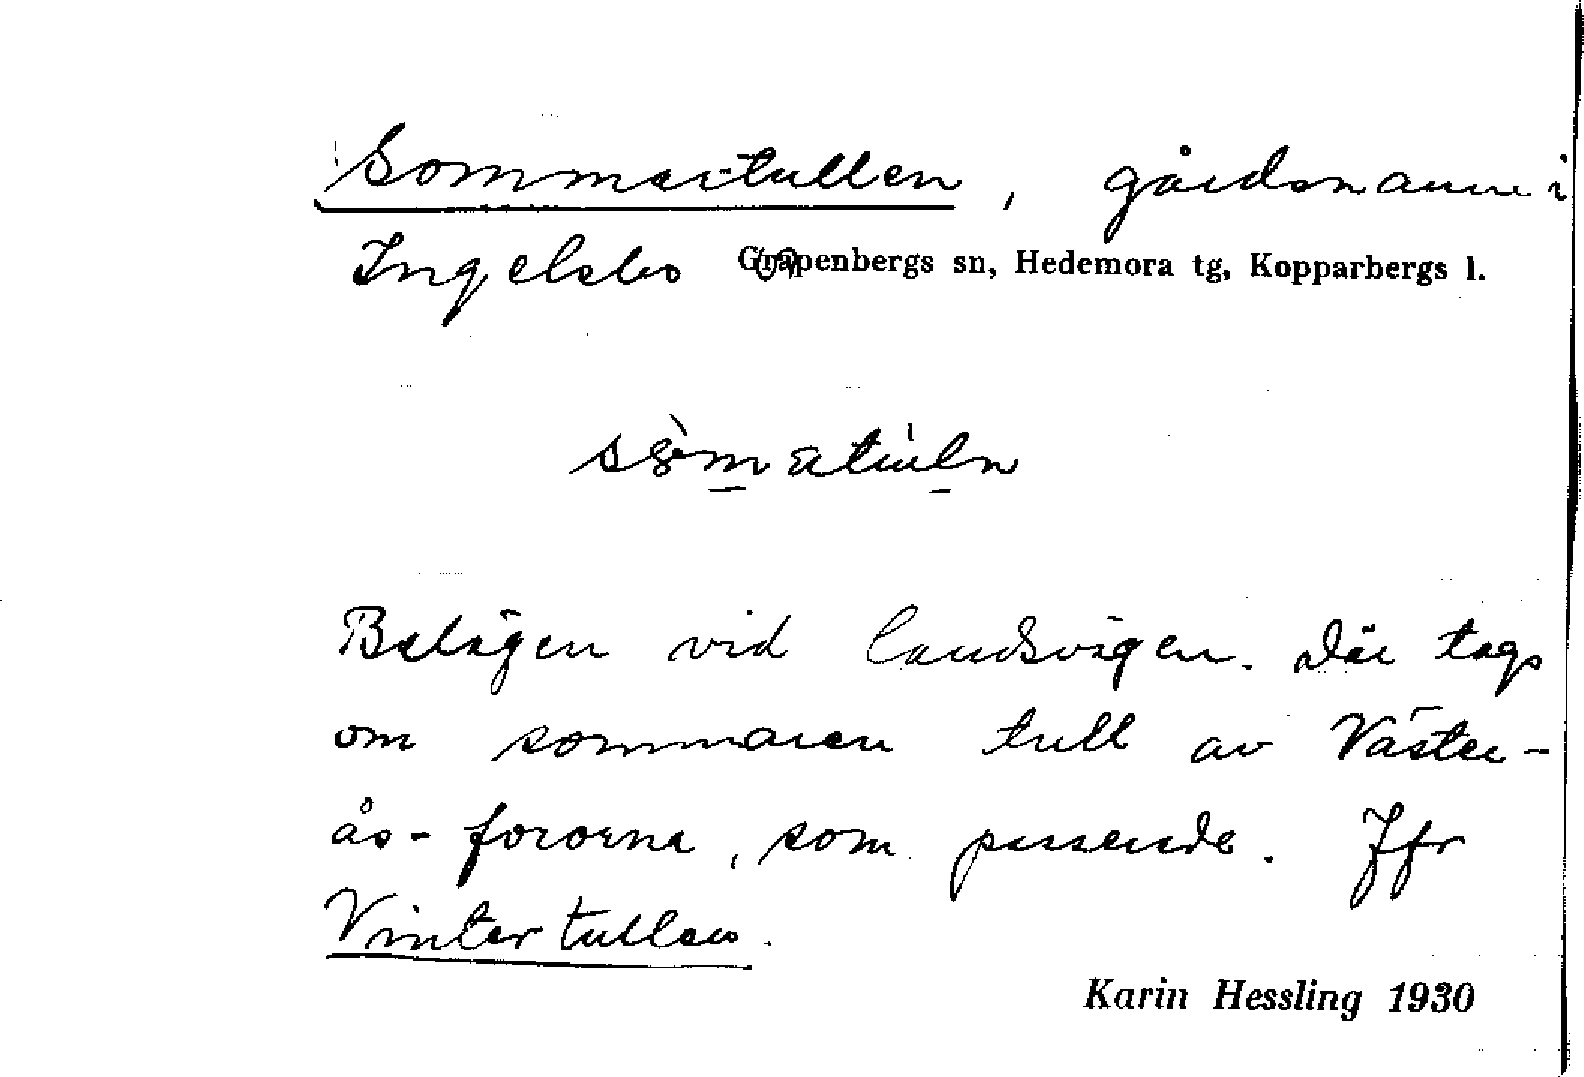 Sommartullen, gårdsnamn i
Ingelsbo Grapenbergs sn, Hedemora tg, Kopparbergs l.
Belägen vid landsvägen. Där togs
om sommaren tull av Väster-
ås-fororna, som passerade. Jfr
Vintertullen.
Karin Hessling 1930